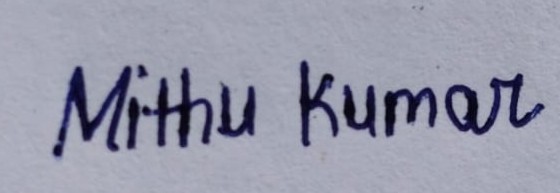 Mithu Kumar